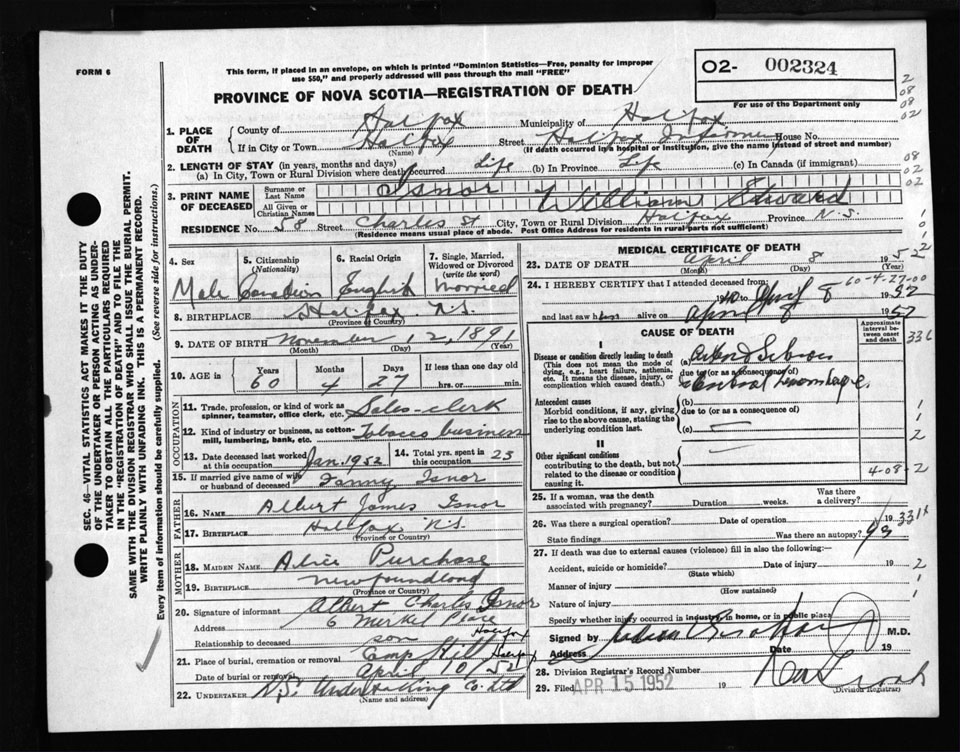 FORM 6
This form, if placed in an envelope, on which is printed "Dominion Statistics—Free, penalty for improper
use $50," and properly addressed will pass through the mail "FREE"
O2- 002324
For use of the Department only
2
08
08
02
PROVINCE OF NOVA SCOTIA—REGISTRATION OF DEATH
1. PLACE OF DEATH
County of Halifax Municipality of Halifax
If in City or Town Halifax Street Halifax House No.
(Name) (If death occurred in a hospital or institution, give the name instead of street and number)
2. LENGTH OF STAY (in years, months and days)
(a) In City, Town or Rural Division where death occurred Life (b) In Province Life (c) In Canada (if immigrant)
08
02
02
3. PRINT NAME OF DECEASED
Surname or Last Name Isnor
All Given or Christian Names William Edward
RESIDENCE No. 58 Street Charles St City, Town or Rural Division Halifax Province N.S.
(Residence means usual place of abode. Post Office Address for residents in rural parts not sufficient)
4. Sex
Male
5. Citizenship (Nationality)
Canadian
6. Racial Origin
English
7. Single, Married, Widowed or Divorced (write the word)
Married
8. BIRTHPLACE Halifax N.S.
(Province or Country)
9. DATE OF BIRTH November 12, 1891
(Month) (Day) (Year)
10. AGE in Years Months Days If less than one day
60 4 27 hrs. or min.
OCCUPATION
11. Trade, profession, or kind of work as spinner, teamster, office clerk, etc. Sales-clerk
12. Kind of industry or business, as cotton-mill, lumbering, bank, etc. Tobacco business
13. Date deceased last worked at this occupation Jan. 1952
14. Total yrs. spent in this occupation 23
15. If married give name of wife or husband of deceased Fanny Isnor
FATHER
16. NAME Albert James Isnor
17. BIRTHPLACE Halifax N.S.
(Province or Country)
MOTHER
18. MAIDEN NAME Alice Purchase
19. BIRTHPLACE Newfoundland
(Province or Country)
20. Signature of informant Albert Charles Isnor
Address 6 Merkel Place Halifax
Relationship to deceased son
21. Place of burial, cremation or removal Camp Hill Halifax
Date of burial or removal April 10, 52
22. UNDERTAKER N.S. Undertaking Co. Ltd
(Name and address)
MEDICAL CERTIFICATE OF DEATH
23. DATE OF DEATH April 8 1952
(Month) (Day) (Year)
24. I HEREBY CERTIFY that I attended deceased from:
60-4-27-00
and last saw h alive on
CAUSE OF DEATH
Approximate interval between onset and death
I
Disease or condition directly leading to death
(This does not mean the mode of dying, e.g., heart failure, asthenia, etc. It means the disease, injury, or complication which caused death.)
(a)
due to (or as a consequence of)
336
Antecedent causes
Morbid conditions, if any, giving rise to the above cause, stating the underlying condition last.
(b)
due to (or as a consequence of)
(c)
II
Other significant conditions
contributing to the death, but not related to the disease or condition causing it.
4-08-2
25. If a woman, was the death associated with pregnancy? Duration weeks. Was there a delivery?
26. Was there a surgical operation? Date of operation 19
State findings Was there an autopsy?
27. If death was due to external causes (violence) fill in also the following:—
Accident, suicide or homicide? Date of injury 19
(State which)
Manner of injury
(How sustained)
Nature of injury
Specify whether injury occurred in industry, in home, or in public place
Signed by M.D.
Address Date 19
28. Division Registrar's Record Number
29. Filed APR 15 1952 19
(Division Registrar)
SEC. 46—VITAL STATISTICS ACT MAKES IT THE DUTY
OF THE UNDERTAKER OR PERSON ACTING AS UNDER-
TAKER TO OBTAIN ALL THE PARTICULARS REQUIRED
IN THE "REGISTRATION OF DEATH" AND TO FILE THE
SAME WITH THE DIVISION REGISTRAR WHO SHALL ISSUE THE BURIAL PERMIT.
WRITE PLAINLY WITH UNFADING INK. THIS IS A PERMANENT RECORD.
Every item of information should be carefully supplied. (See reverse side for instructions.)